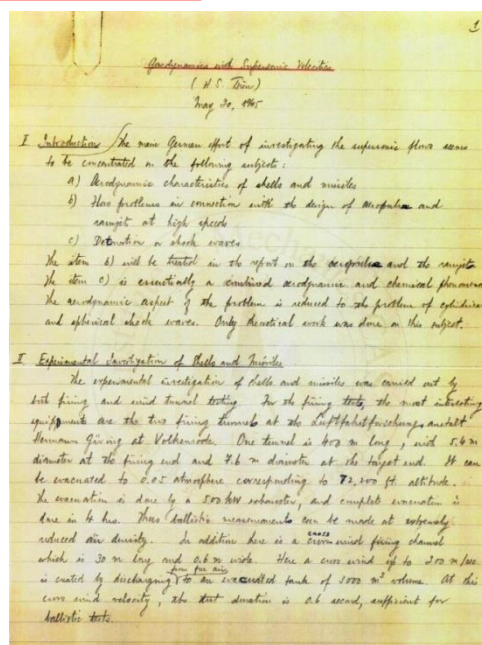 1
Gasdynamics with Supersonic Velocities
(H. S. Tsien)
May 30, 1945
I Introduction / The main German effort of investigating the supersonic flows seems
to be concentrated on the following subjects:
a) Aerodynamic characteristics of shells and missiles
b) Flow problems in connection with the design of aeropulse and
ramjet at high speeds
c) Detonation or shock waves
The item b) will be treated in the report on the aeropulse and the ramjets.
The item c) is essentially a combined aerodynamic and chemical phenomenon
The aerodynamic aspect of the problem is reduced to the problem of cylindrical
and spherical shock waves. Only theoretical work was done on this subject.
II Experimental Investigation of Shells and Missiles
The experimental investigation of shells and missiles was carried out by
both firing and wind tunnel testing. For the firing tests, the most interesting
equipments are the two firing tunnels at the Luftfahrtforschungsanstalt
Hermann Göring at Volkenrode. One tunnel is 400 m long, with 5.6 m
diameter at the firing end and 7.6 m diameter at the target end. It can
be evacuated to 0.05 atmosphere corresponding to 72,200 ft. altitude.
The evacuation is done by a 500 kW exhauster, and complete evacuation is
done in 4 hrs. Thus ballistic measurements can be made at extremely
reduced air density. In addition there is a cross wind firing channel
which is 30 m long and 0.6 m wide. Here a cross wind up to 200 m/sec
is created by discharging from free air to an evacuated tank of 1000 m³ volume. At this
cross wind velocity, the test duration is 0.6 second, sufficient for
ballistic tests.